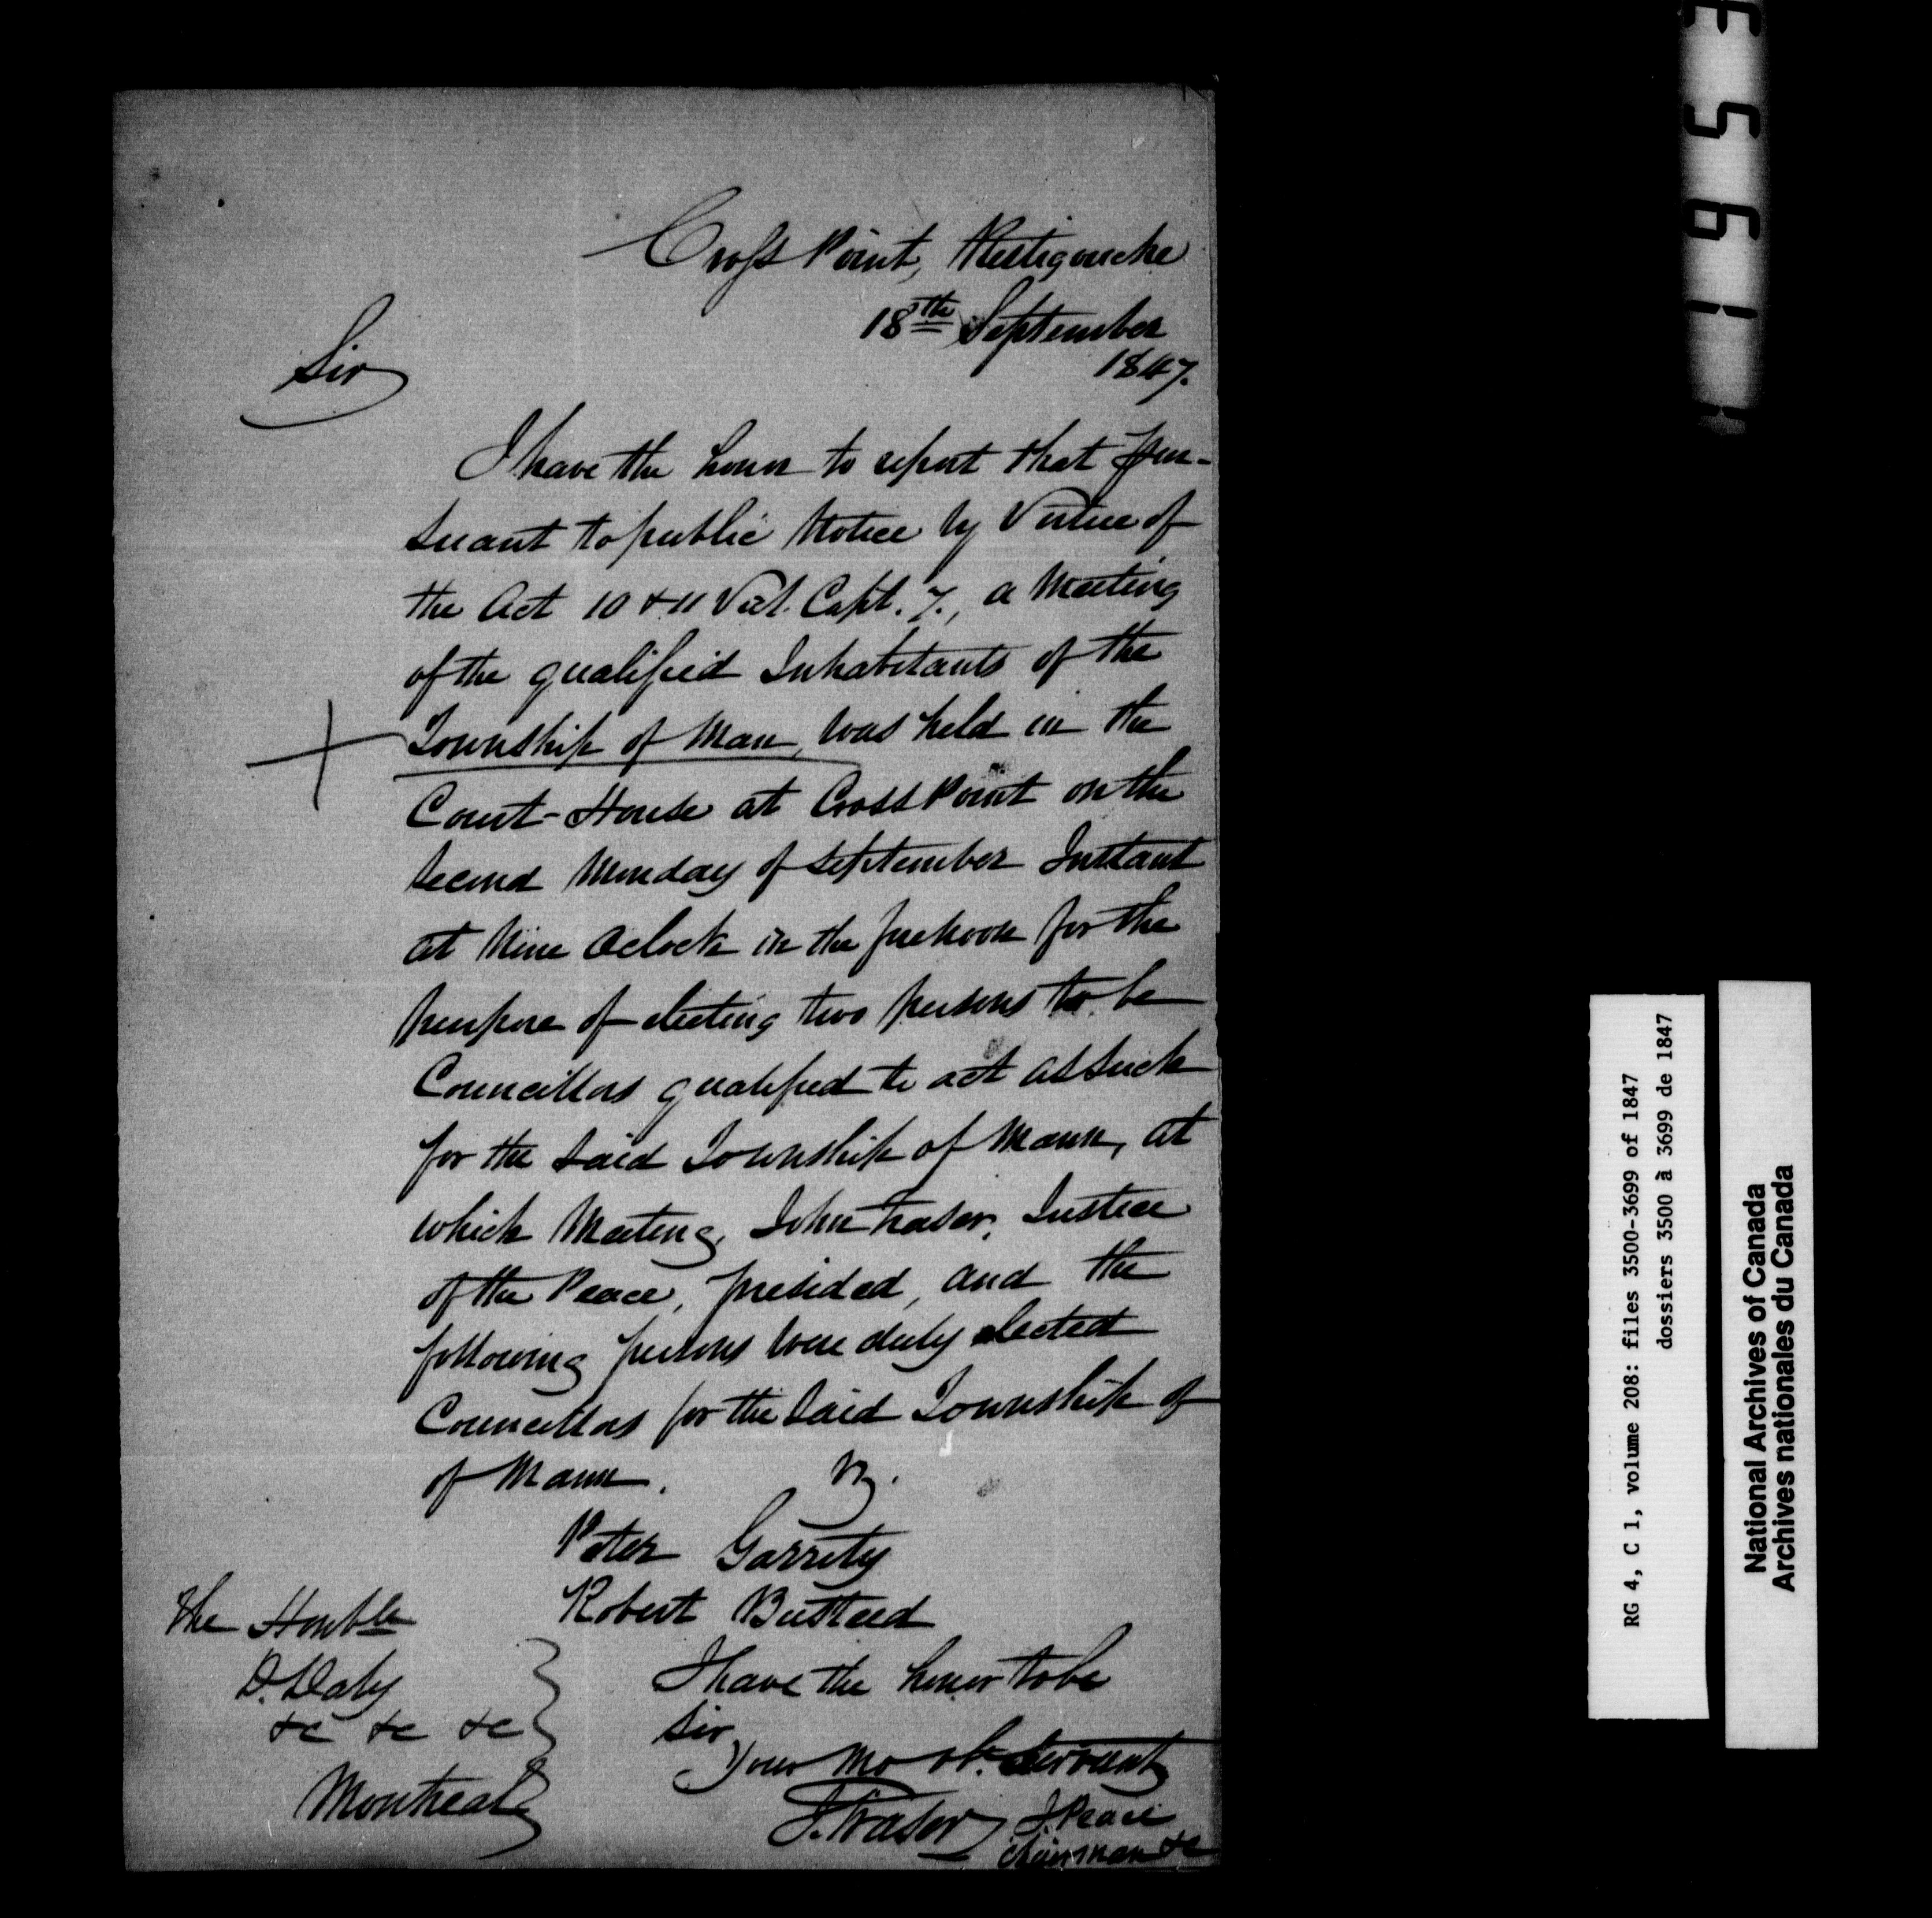 Cross Point, Restigouche
18th September
1847.
Sir
I have the honor to report that Pur-
suant to public Notice by Virtue of
the Act 10 & 11 Vict. Capt. 7., a Meeting
of the qualified Inhabitants of the
Township of Man, was held in the
Court-House at Cross Point on the
Second Monday of September Instant
at Nine Oclock in the forenoon for the
purpose of electing two persons to be
Councillors qualified to act as such
for the said Township of Mann, at
which Meeting, John Fraser, Justice
of the Peace, presided, and the
following persons were duly elected
Councillors for the said Township of
of Mann. Viz.
Peter Garrity
Robert Busteed
The Honble
D. Daly
&c &c &c
Montreal
I have the honor to be
Sir
Your Mo ob. Servant
J. Fraser J. Peace
Chairman &c
1659
RG 4, C 1, volume 208: files 3500-3699 of 1847
dossiers 3500 à 3699 de 1847
National Archives of Canada
Archives nationales du Canada